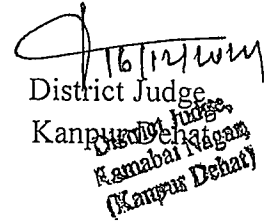 16/12/2024
District Judge,
Kanpur Dehat
District Judge,
Ramabai Nagar,
(Kanpur Dehat)